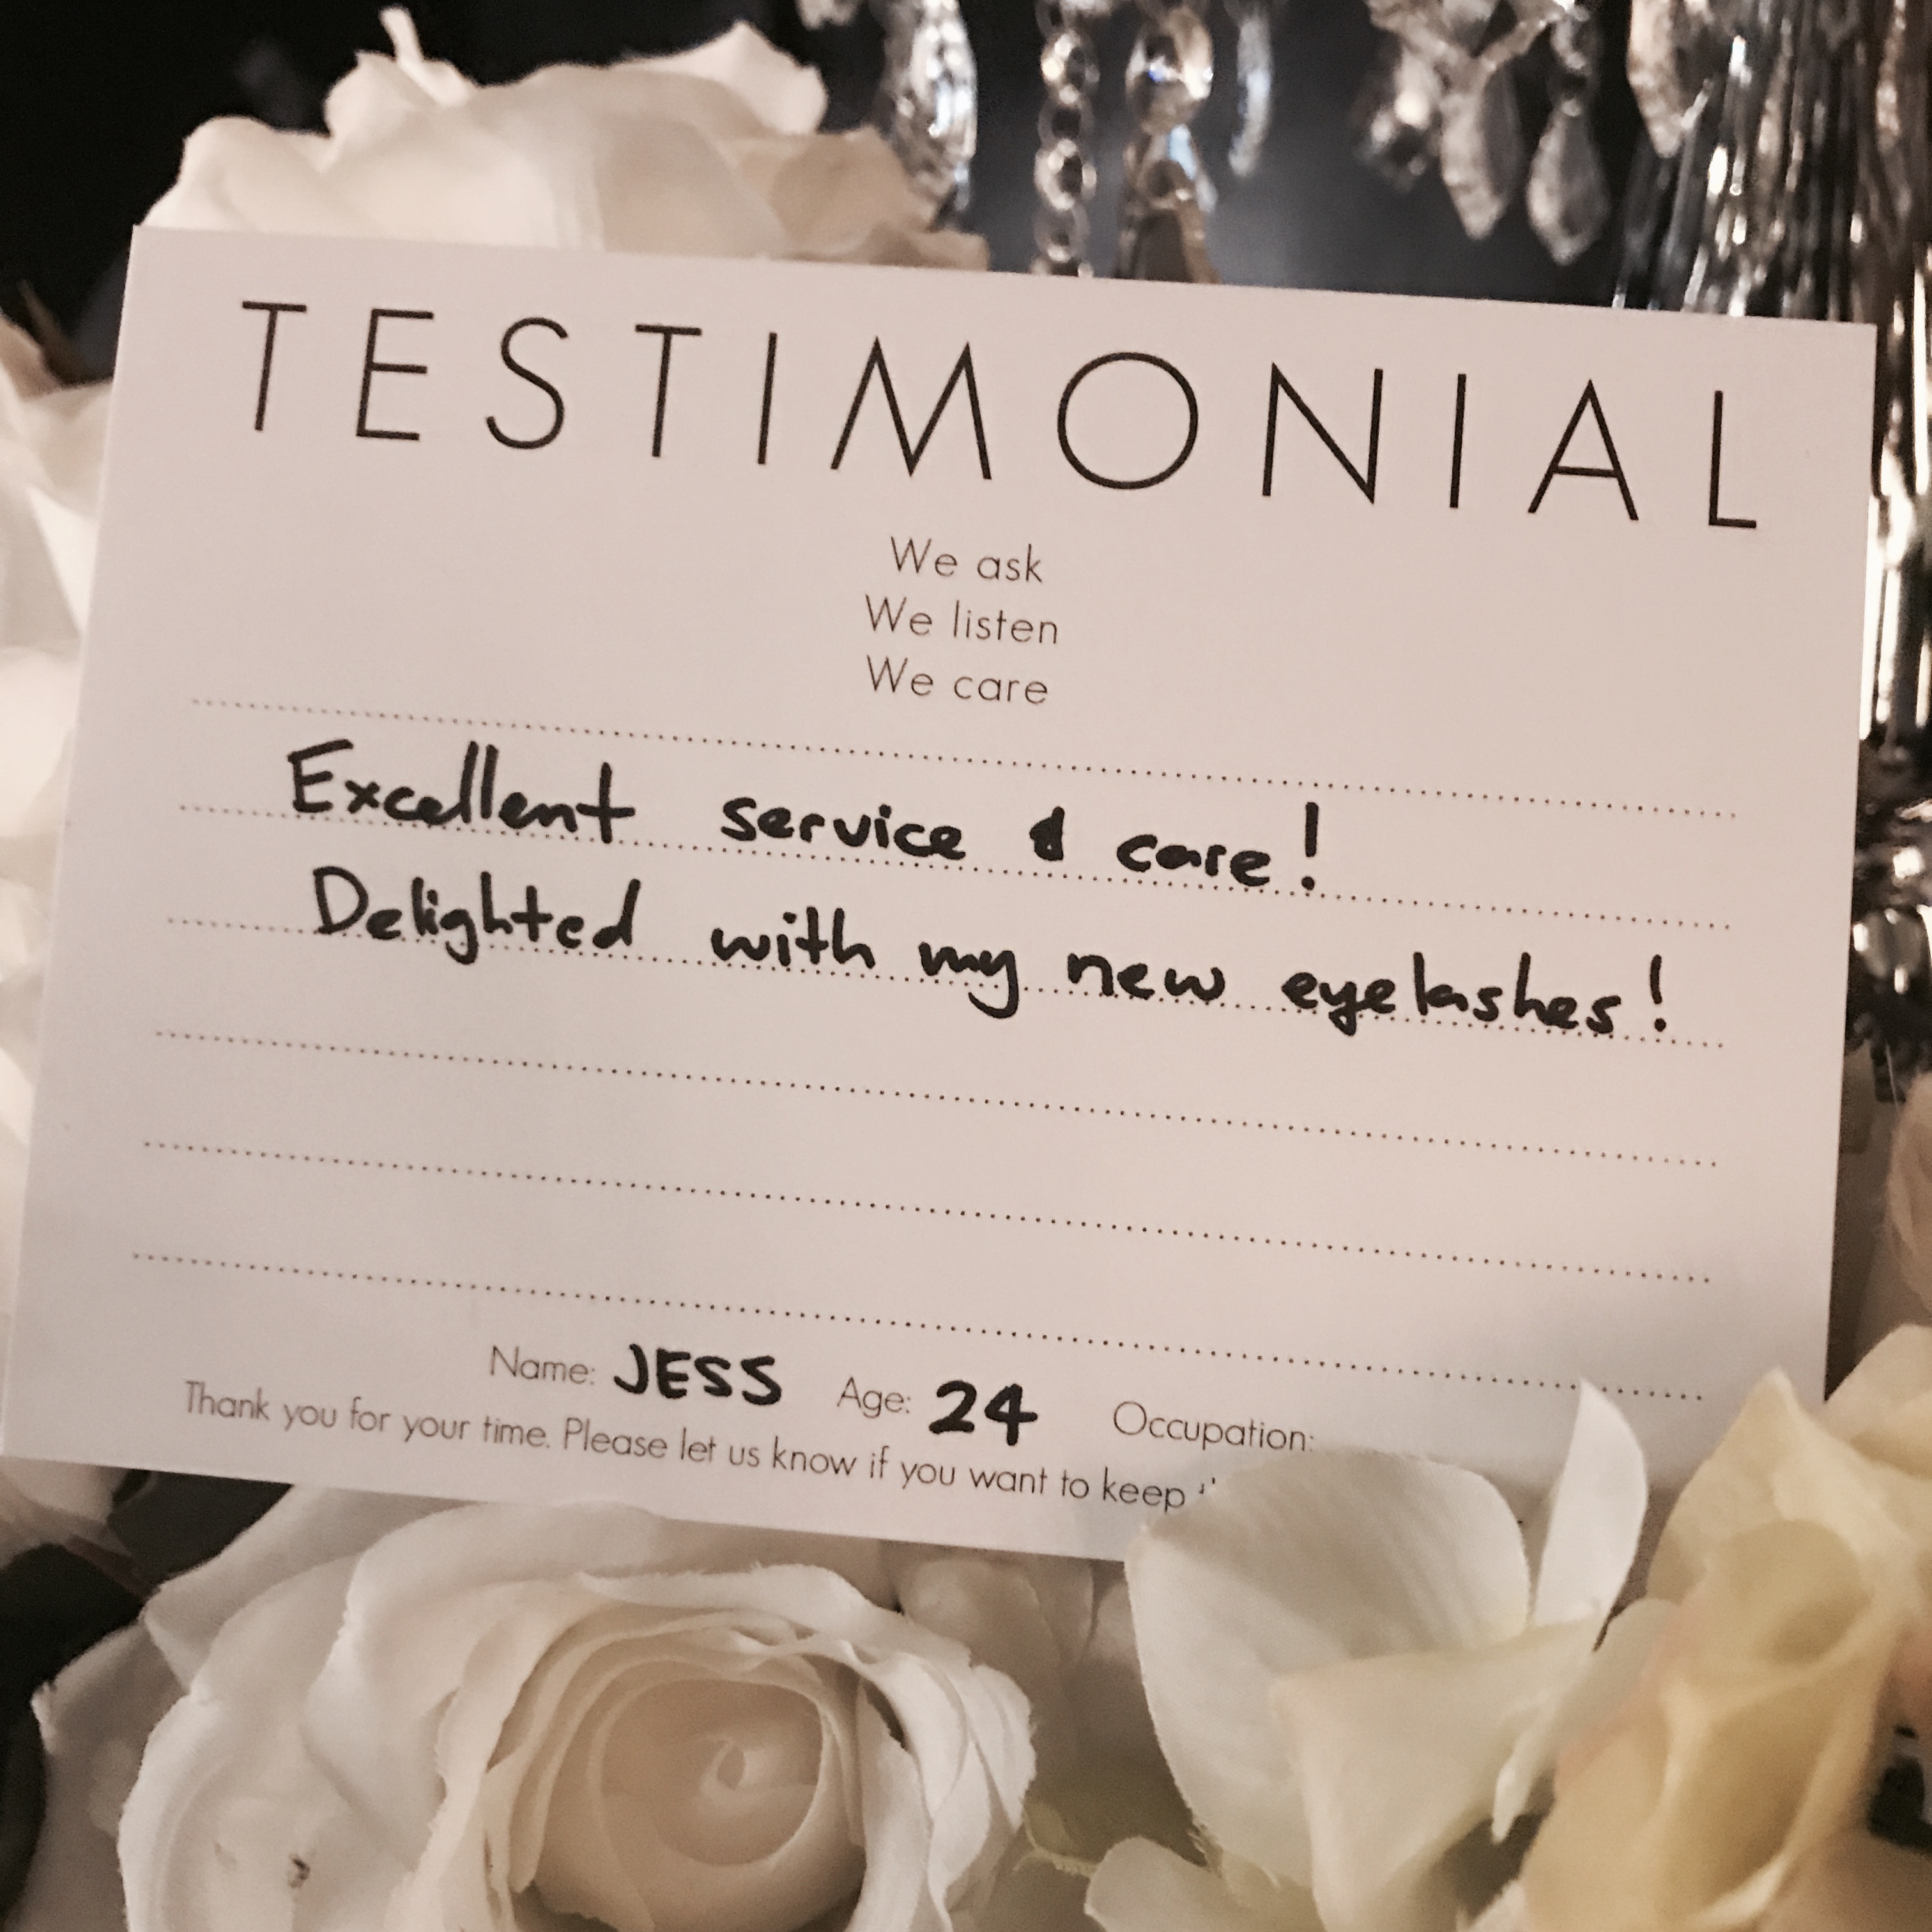 TESTIMONIAL
We ask
We listen
We care
Excellent service & care!
Delighted with my new eyelashes!
Name: JESS Age: 24 Occupation:
Thank you for your time. Please let us know if you want to keep